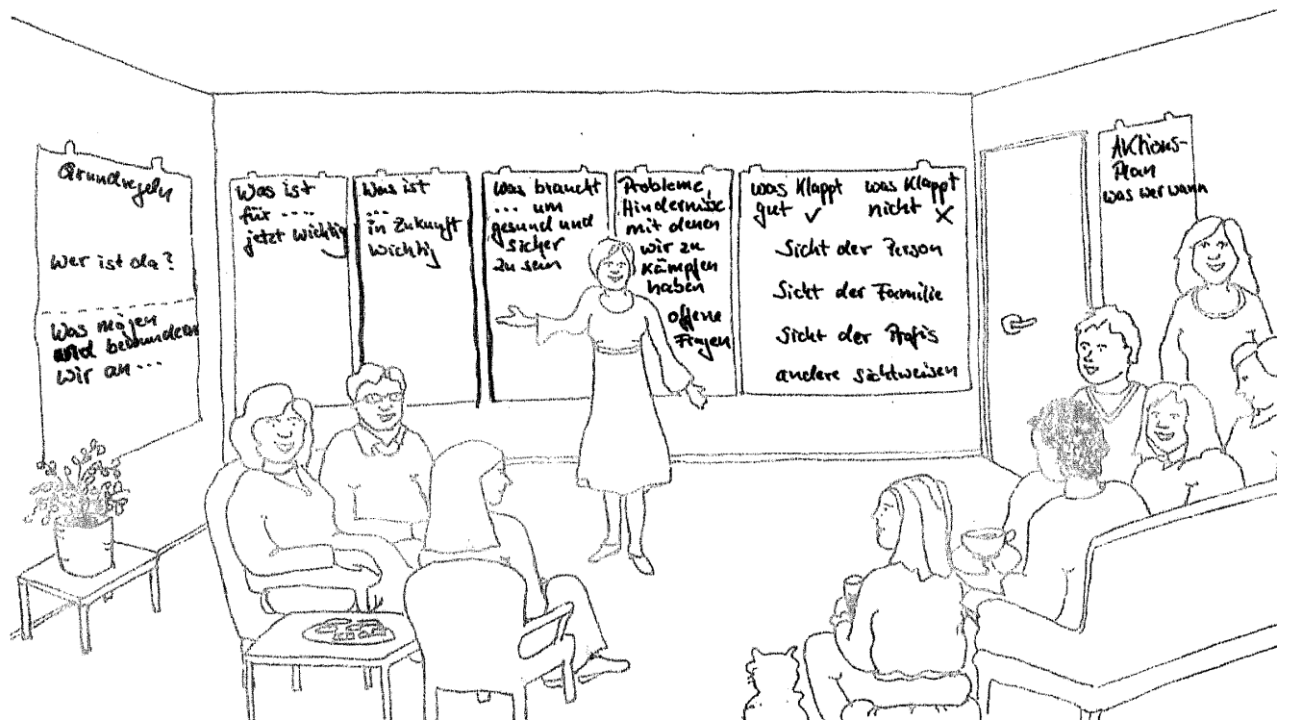 Grundregeln
Wer ist da?
Was mögen
und bewundern
wir an ...
Was ist
für ....
jetzt wichtig
Was ist
...
in Zukunft
wichtig
Was braucht
... um
gesund und
sicher
zu sein
Probleme,
Hindernisse
mit denen
wir zu
kämpfen
haben
offene
Fragen
was klappt was klappt
gut ✓ nicht X
Sicht der Person
Sicht der Familie
Sicht der Profis
andere Sichtweisen
Aktions-
Plan
was wer wann